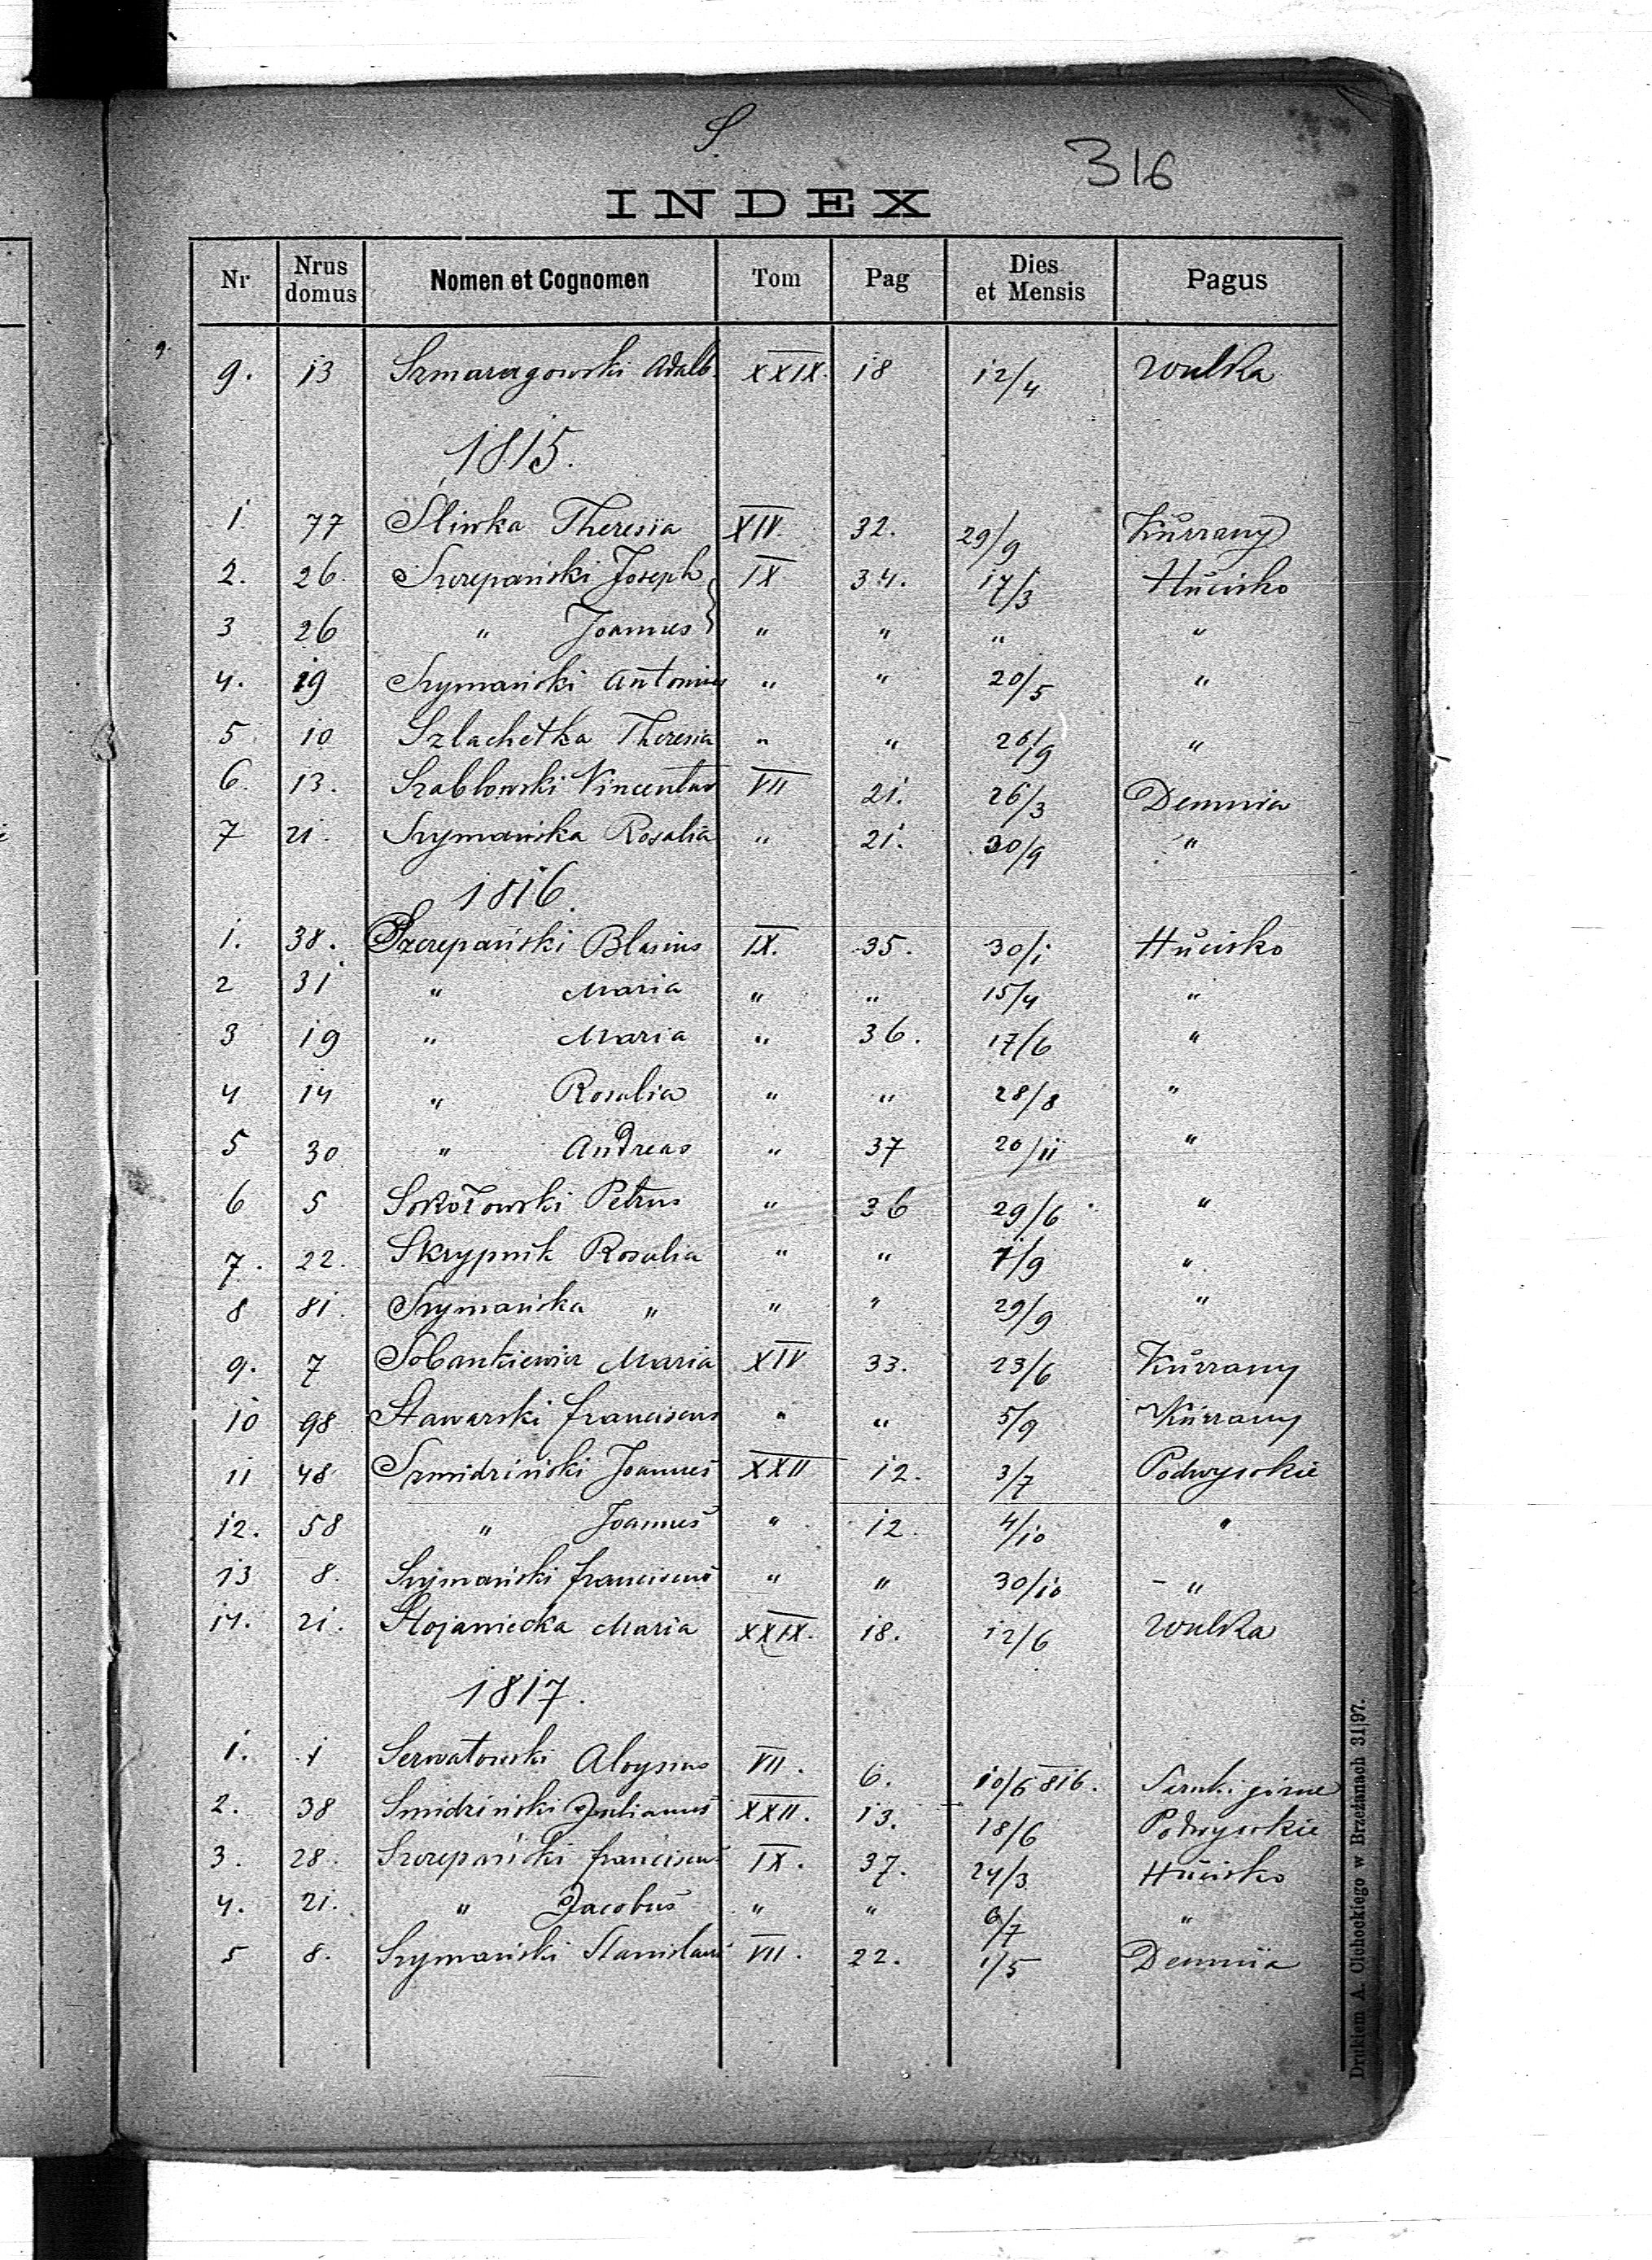 S
316
INDEX
Nr | Nrus domus | Nomen et Cognomen | Tom | Pag | Dies et Mensis | Pagus
9. | 13 | Szmaragowski Adalb. | XXIX. | 18 | 12/4 | Wulka
1815.
1. | 77 | Śliwka Theresia | XIV. | 32. | 29/9 | Kurzany
2. | 26. | Szczepański Joseph | IX | 34. | 17/3 | Hucisko
3 | 26 | " Joannes | " | " | " | "
4. | 19 | Szymański Antonius | " | " | 20/5 | "
5 | 10 | Szlachetka Theresia | " | " | 26/9 | "
6. | 13. | Szablowski Vincentius | VII | 21. | 26/3 | Demnia
7 | 21. | Szymańska Rosalia | " | 21. | 30/9 | "
1816.
1. | 38. | Szczepański Blasius | IX. | 35. | 30/1 | Hucisko
2 | 31 | " Maria | " | " | 15/4 | "
3 | 19 | " Maria | " | 36. | 17/6 | "
4 | 14 | " Rosalia | " | " | 28/8 | "
5 | 30 | " Andreas | " | 37 | 20/11 | "
6 | 5 | Sokołowski Petrus | " | 36 | 29/6 | "
7. | 22. | Skrypnik Rosalia | " | " | 1/9 | "
8 | 81. | Szymańska " | " | " | 29/9 | "
9. | 7 | Sobankiewicz Maria | XIV | 33. | 23/6 | Kurzany
10 | 98 | Stawarski Franciscus | " | " | 5/9 | Kurzany
11 | 48 | Szmidziński Joannes | XXII | 12. | 3/7 | Podwysokie
12. | 58 | " Joannes | " | 12. | 4/10 | "
13 | 8. | Szymański Franciscus | " | " | 30/10 | - "
14. | 21. | Stojaniecka Maria | XXIX. | 18. | 12/6 | Wulka
1817.
1. | 1 | Serwatowski Aloysius | VII. | 6. | 10/6 816. | Sarnki górne
2. | 38 | Smidziński Julianus | XXII. | 13. | 18/6 | Podwysokie
3. | 28. | Szczepański Franciscus | IX. | 37. | 24/3 | Hucisko
4. | 21. | " Jacobus | " | " | 6/7 | "
5 | 8. | Szymański Stanislaus | VII. | 22. | 1/5 | Demnia
Drukiem A. Olchockiego w Brzeżanach 31|97.